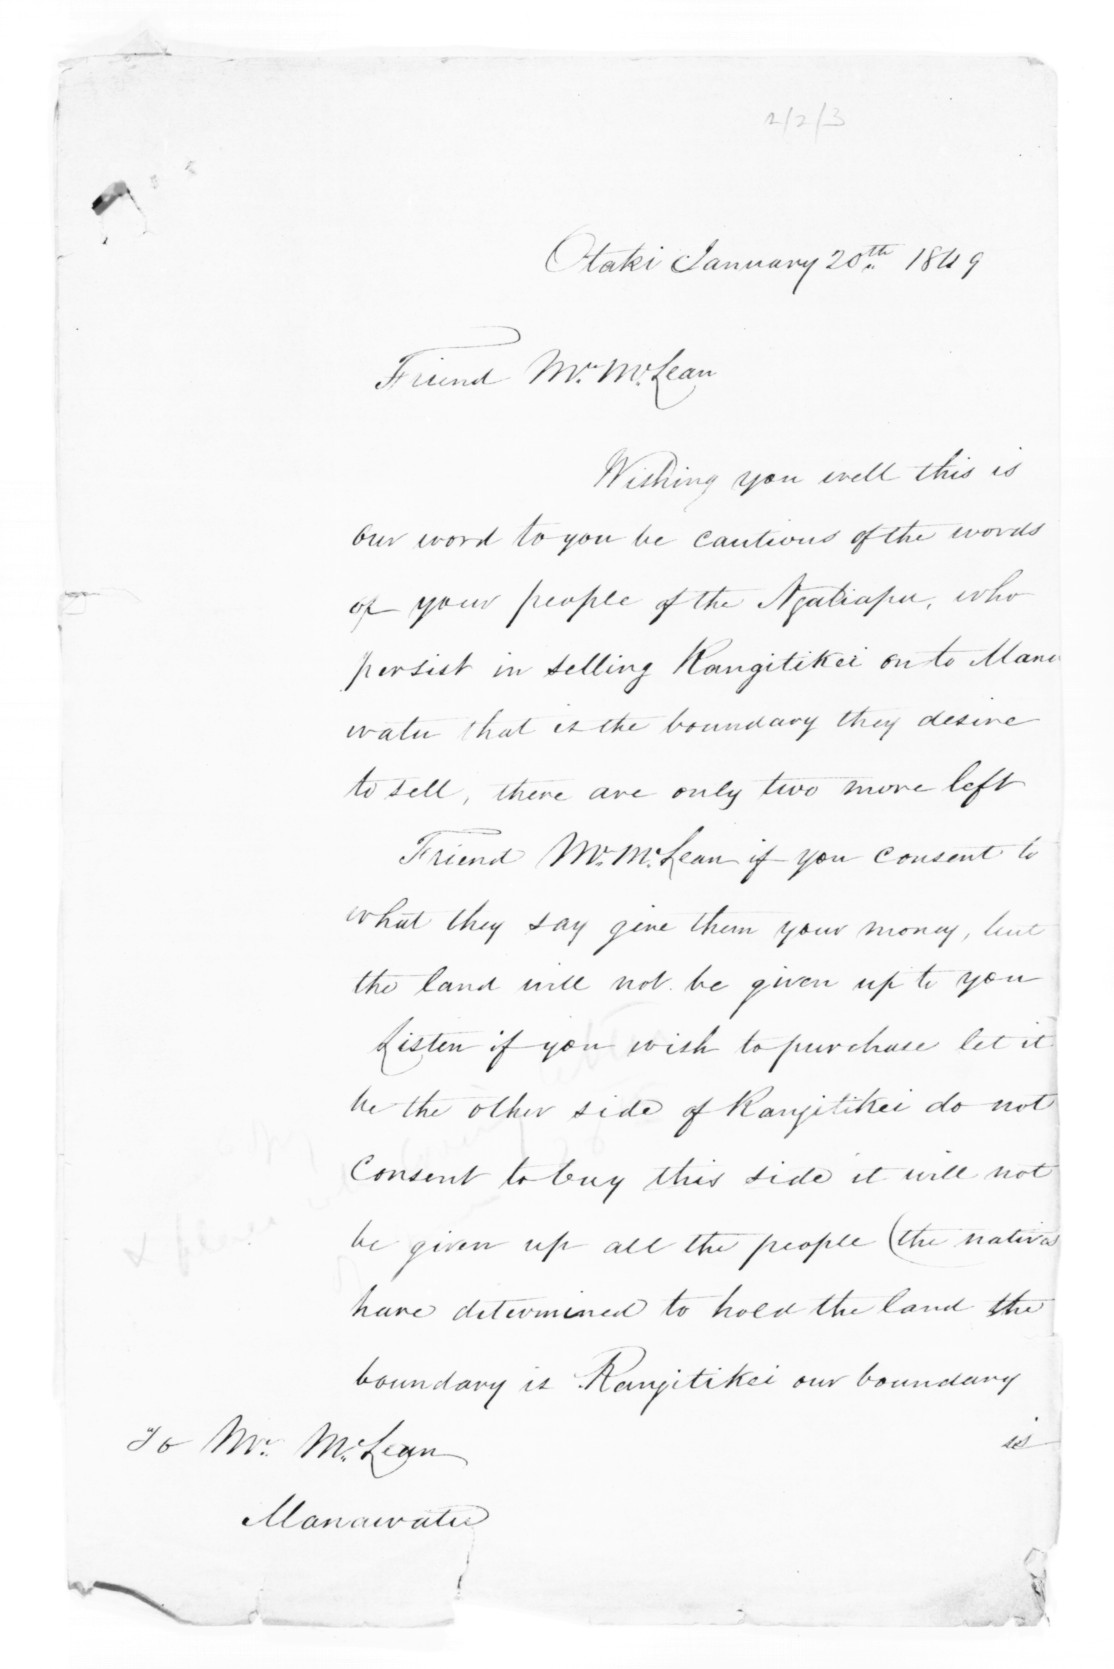 2/2/3
Otaki January 20th. 1849
Friend Mr. McLean
Wishing you well this is
our word to you be cautious of the words
of your people of the Ngatiapu, who
persist in selling Rangitikei on to Mana
watu that is the boundary they desire
to sell, there are only two more left
Friend Mr. McLean if you consent to
what they say give them your money, but
the land will not be given up to you
Listen if you wish to purchase let it
be the other side of Rangitikei do not
consent to buy this side it will not
be given up all the people (the natives
have determined to hold the land the
boundary is Rangitikei our boundary
is
To Mr. McLean
Manawatu